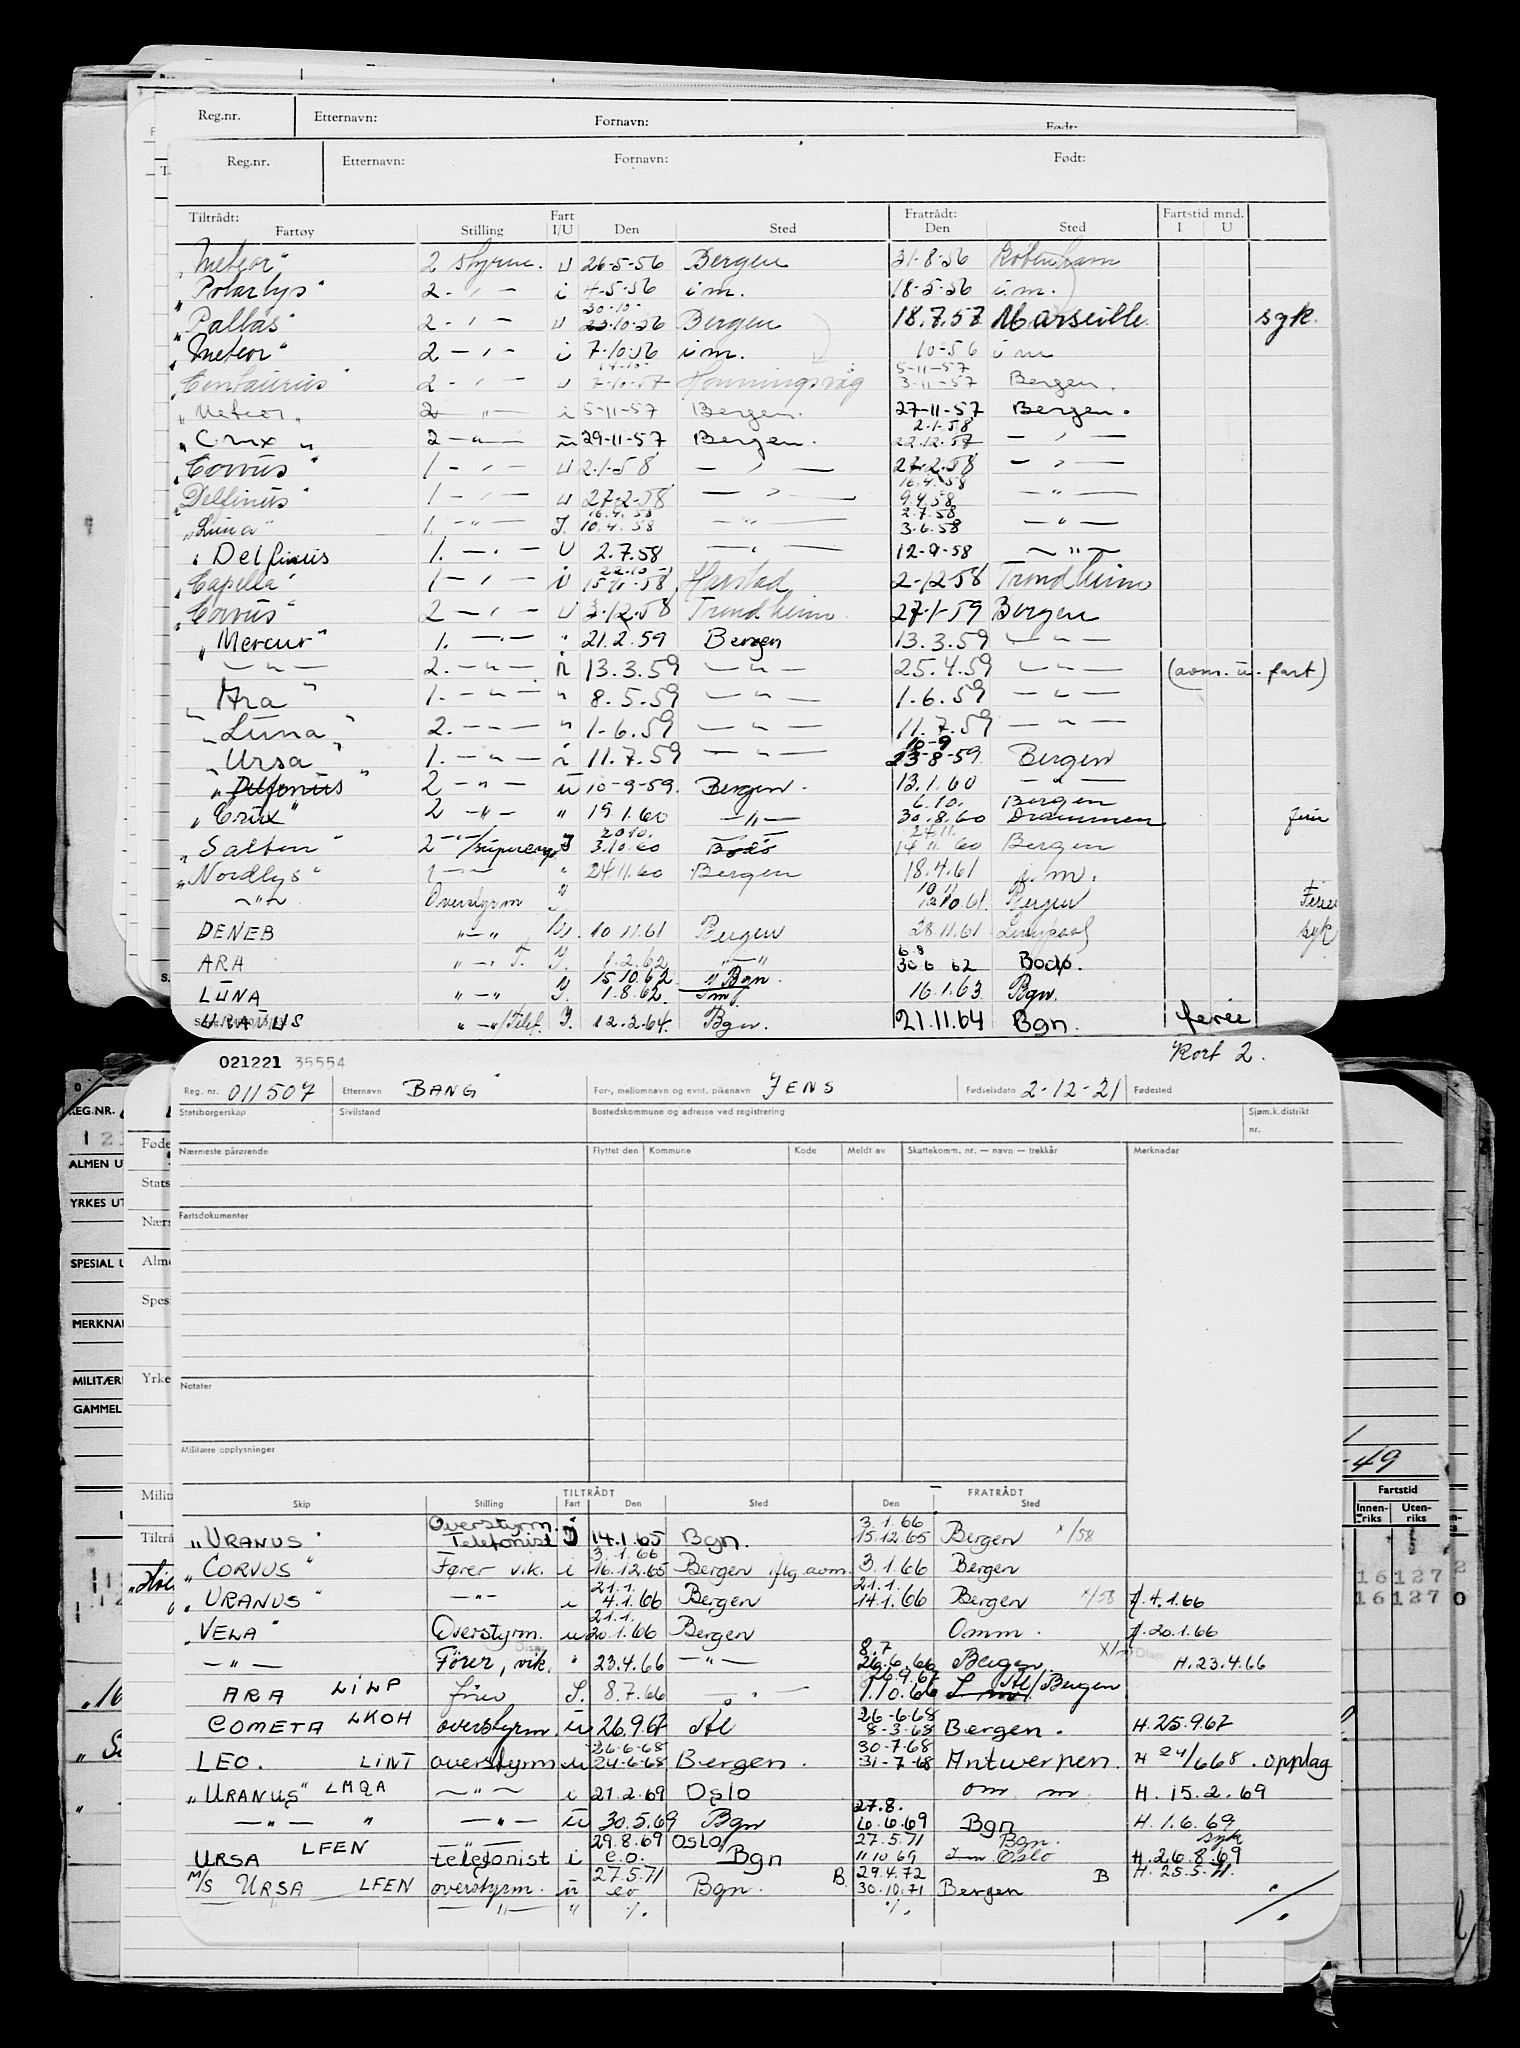 Reg.nr. Etternavn: Fornavn: Født:
Reg.nr. Etternavn: Fornavn: Født:
Tiltrådt: Fart Fratrådt: Fartstid mnd.
Fartøy Stilling I/U Den Sted Den Sted I U
"Meteor" 2 styrm. u 26-5-56 Bergen 31-8-56 København
"Polarlys" 2 - " - i 4-5-56 i.m. 18-5-56 i.m.
30-10-
"Pallas" 2 - " - u 23.10-56 Bergen 18.7.57 Marseille syk.
"Meteor" 2 - " - i 7-10-56 i m. 10-56 i m
14-10- 5-11-57
"Centaurus" 2 - " - u 7-10-57 Honningsvåg 3-11-57 Bergen.
"Meteor" 2 " - i 5-11-57 Bergen. 27-11-57 Bergen.
2-1-58
"Crux" 2 - " - u 29-11-57 Bergen. 22.12.57 - " -
"Corvus" 1 - " - u 2-1-58 - " - 27-2-58 - " -
16.4.58
"Delfinus" 1 - " - u 27-2-58 - " - 9.4.58 - " -
16.4.58 2.7.58
"Luna" 1. - " - I. 10.4.58 - " - 3.6.58 - " -
"Delfinus 1. - " - U 2.7.58 - " - 12-9-58 - " -
22.10-
"Capella" 1 - " - i 58 Harstad 2-12-58 Trondheim
"Corvus" 2 - " - u 3-12-58 Trondheim 27-1-59 Bergen
"Mercur" 1. - " - " 21.2.59 Bergen 13.3.59 - " -
- " - 2. - " - i 13.3.59 - " - 25.4.59 - " - (avm. u. fart)
"Ara" 1. - " - " 8.5.59 - " - 1.6.59 - " -
"Luna" 2. - " - " 1-6.59 - " - 11.7.59 - " -
10-9
"Ursa" 1. - " - i 11.7.59 - " - 23-8-59. Bergen
"Delfinus" 2 - " - u 10-9-59. Bergen. 13.1.60 - " -
6.10. Bergen
"Crux" 2 - " - " 19.1.60 - " - 30.8.60 Drammen ferie
20.10. 24.11.
"Salten" 2 - " - /supercargo I 3.10.60 Bodø 14.11.60 Bergen
"Nordlys" 2 - " - " 24.11.60 Bergen 18.4.61 i.m.
10.11
- " - Overstyrm I. 10.61. Bergen Ferie
DENEB " - " U. 10.11.61 Bergen 28.11.61 Liverpool syk
6.8
ARA " - " T. I. 1.2.62 " - " 30.6.62 Bodø.
15.10.62 " Bgn.
LUNA " - " I. 1.8.62. I m. 16.1.63. Bgn.
URANUS " - " /Telef. I. 12.2.64. Bgn. 21.11.64 Bgn. ferie
Kort 2.
021221 35554
Reg. nr. 011507 Etternavn BANG For-, mellomnavn og evnt. pikenavn JENS Fødselsdato 2-12-21 Fødested
Statsborgerskap Sivilstand Bostedskommune og adresse ved registrering Sjøm.k.distrikt
nr.
Nærmeste pårørende Flyttet den Kommune Kode Meldt av Skattekomm. nr. — navn — trekkår Merknader
Fartsdokumenter
Notater
Militære opplysninger
TILTRÅDT FRATRÅDT
Skip Stilling Fart Den Sted Den Sted
Overstyrm. 3.1.66
"URANUS" Telefonist I 14.1.65 Bgn. 15.12.65 Bergen x/58
3.1.66
"CORVUS" Fører vik. i 16.12.65 Bergen iflg avm. 3.1.66 Bergen
21.1. 21.1.
"URANUS" - " - i 4.1.66 Bergen 14.1.66 Bergen x/58 H. 4.1.66
21.1.
"VELA" Overstyrm. u 20.1.66 Bergen Omm. H. 20.1.66
8.7
- " - Fører, vik. " 23.4.66 - " - 26.6.66 Bergen. H. 23.4.66
26.9.67
ARA LILP fører I. 8.7.66 - " - 1.10.66 Stl/Bergen
26-6-68
COMETA LKOH overstyrm. u 26.9.67 Stl 8-3-68 Bergen. H. 25.9.67
26-6-68 30-7-68
LEO. LINT overstyrm u 24-6-68 Bergen. 31-7-68 Antwerpen. H 24/668. opplag
"URANUS" LMQA - " - i 21.2.69 Oslo om m. H. 15.2.69
27.8.
- " - " - " - u 30.5.69 Bgn 6.6.69 Bgn H. 1.6.69
29.8.69 Oslo 27.5.71 Bgn. syk
URSA LFEN telefonist i e.o. Bgn 11 10 69 I m Oslo H. 26.8.69
27.5.71 B 29.4.72 B H. 25.5.71.
M/S URSA LFEN overstyrm. u eo Bgn. 30.10.71 Bergen
- " - " %. %. %.
REG.NR.
ALMEN U
YRKES UT
SPESIAL U
MERKNA
MILITÆR
GAMMEL
Føde
Stats
Nærm
Alme
Spes
Yrke
Milit
Tiltrå
-49
Fartstid
Innen-riks Uten-riks
16127
16127